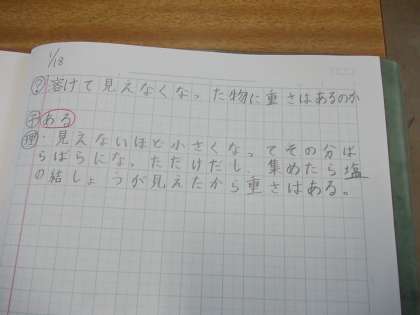 1/18
? 溶けて見えなくなった物に重さはあるのか
予 ある
理・見えないほど小さくなってその分ば
らばらになっただけだし、集めたら塩
の結しょうが見えたから重さはある。